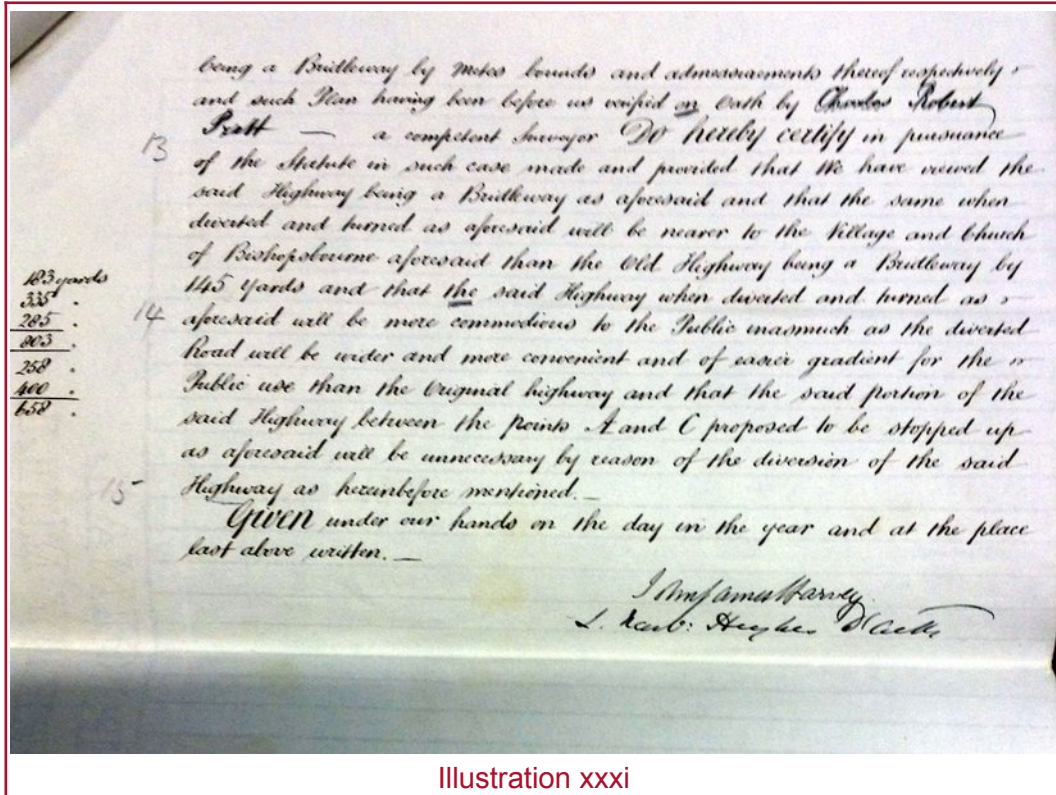 being a Bridleway by Metes bounds and admeasurements thereof respectively
and such Plan having been before us verified on Oath by Charles Robert
Pratt — a competent Surveyor Do hereby certify in pursuance
13
of the Statute in such case made and provided that We have viewed the
said Highway being a Bridleway as aforesaid and that the same when
diverted and turned as aforesaid will be nearer to the Village and Church
of Bishopsbourne aforesaid than the Old Highway being a Bridleway by
145 yards and that the said Highway when diverted and turned as
14
aforesaid will be more commodious to the Public inasmuch as the diverted
Road will be wider and more convenient and of easier gradient for the
Public use than the Original highway and that the said portion of the
said Highway between the points A and C proposed to be stopped up
as aforesaid will be unnecessary by reason of the diversion of the said
15
Highway as hereinbefore mentioned. —
Given under our hands on the day in the year and at the place
last above written. —
183 yards
335 .
285 .
803 .
258 .
400 .
658 .
John James Harvey
Hughes
Illustration xxxi